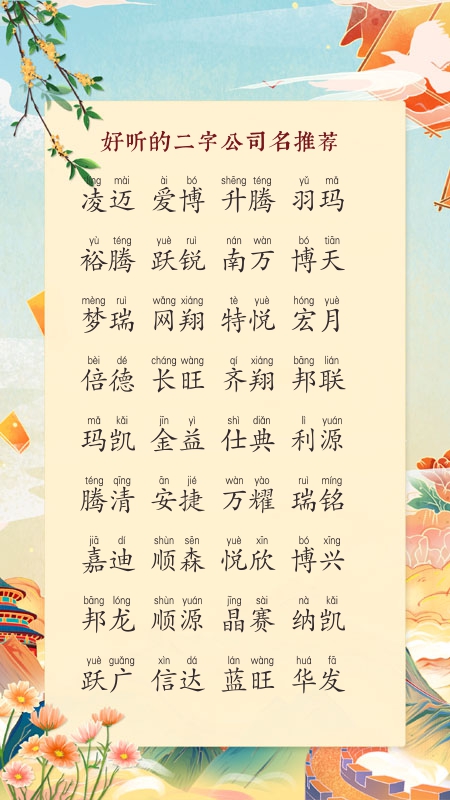 好听的二字公司名推荐
líng mài ài bó shēng téng yǔ mǎ
凌迈 爱博 升腾 羽玛
yù téng yuè ruì nán wàn bó tiān
裕腾 跃锐 南万 博天
mèng ruì wǎng xiáng tè yuè hóng yuè
梦瑞 网翔 特悦 宏月
bèi dé cháng wàng qí xiáng bāng lián
倍德 长旺 齐翔 邦联
mǎ kǎi jīn yì shì diǎn lì yuán
玛凯 金益 仕典 利源
téng qīng ān jié wàn yào ruì míng
腾清 安捷 万耀 瑞铭
jiā dí shùn sēn yuè xīn bó xīng
嘉迪 顺森 悦欣 博兴
bāng lóng shùn yuán jīng sài nà kǎi
邦龙 顺源 晶赛 纳凯
yuè guǎng xìn dá lán wàng huá fā
跃广 信达 蓝旺 华发